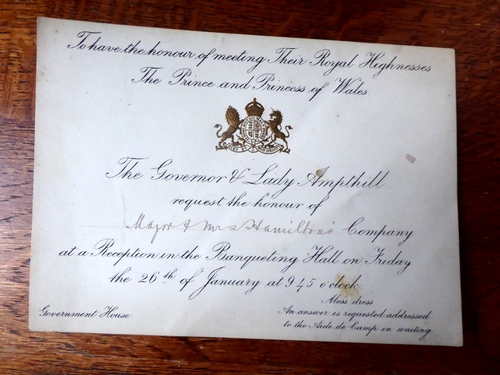 To have the honour of meeting Their Royal Highnesses
The Prince and Princess of Wales
The Governor & Lady Ampthill
request the honour of
Major & Mrs Hamilton's Company
at a Reception in the Banqueting Hall on Friday
the 26th of January at 9.45 o'clock
Mess dress
Government House
An answer is requested addressed
to the Aide de Camp in waiting.